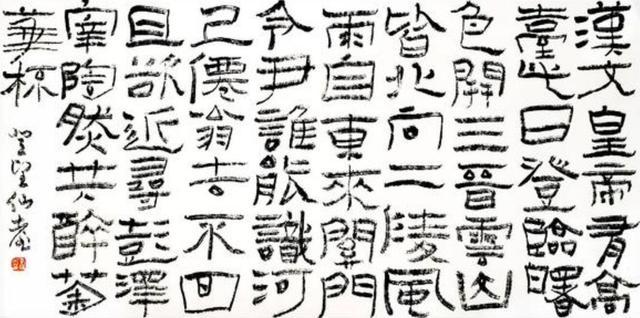 漢文皇帝有高
臺此日登臨曙
色開三晉雲山
皆北向二陵風
雨自東來關門
令尹誰能識河
己僊翁去不回
且欲近尋彭澤
宰陶然共醉菊
華杯
登望仙臺